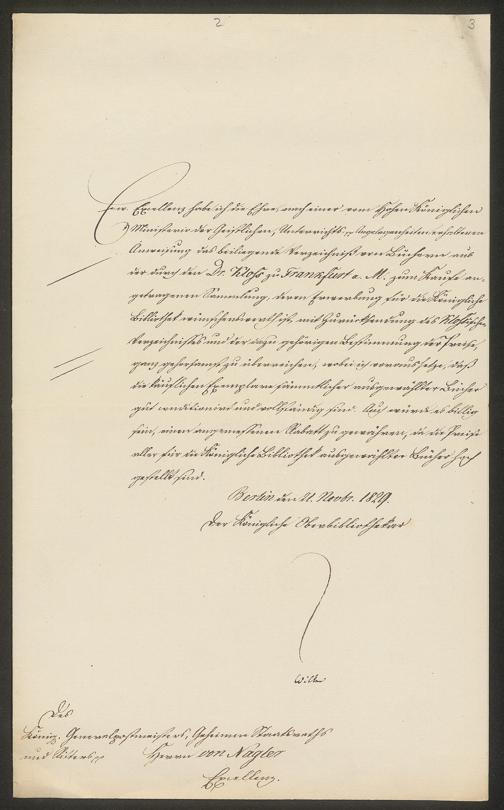 2
3
Ew. Excellenz habe ich die Ehre, nach einer vom Hohen Königlichen
Ministerio der Geistlichen, Unterrichts- pp Angelegenheiten erhaltenen
Anweisung das beiliegende Verzeichniß von Büchern aus
der durch den Dr. Kloß zu Frankfurt a. M. zum Kaufe an-
getragenen Sammlung, deren Erwerbung für die Königliche
Bibliothek wünschenswerth ist, mit Zurücksendung des Kloßischen
Verzeichnisses und der dazu gehörigen Bestimmung der Preise,
ganz gehorsamst zu überreichen, wobei ich voraussetze, daß
die käuflichen Exemplare sämmtlicher ausgewählter Bücher
gut conditionirt und vollständig sind. Auch würde es billig
sein, einen angemessenen Rabatt zu gewähren, da die Preise
aller für die Königliche Bibliothek ausgewählter Bücher hoch
gestellt sind.
Berlin den 21. Novbr. 1829.
Der Königliche Oberbibliothekar
Wilken
Des
Königl. Generalpostmeisters, Geheimen Staatsraths
und Ritters pp Herrn von Nagler
Excellenz.